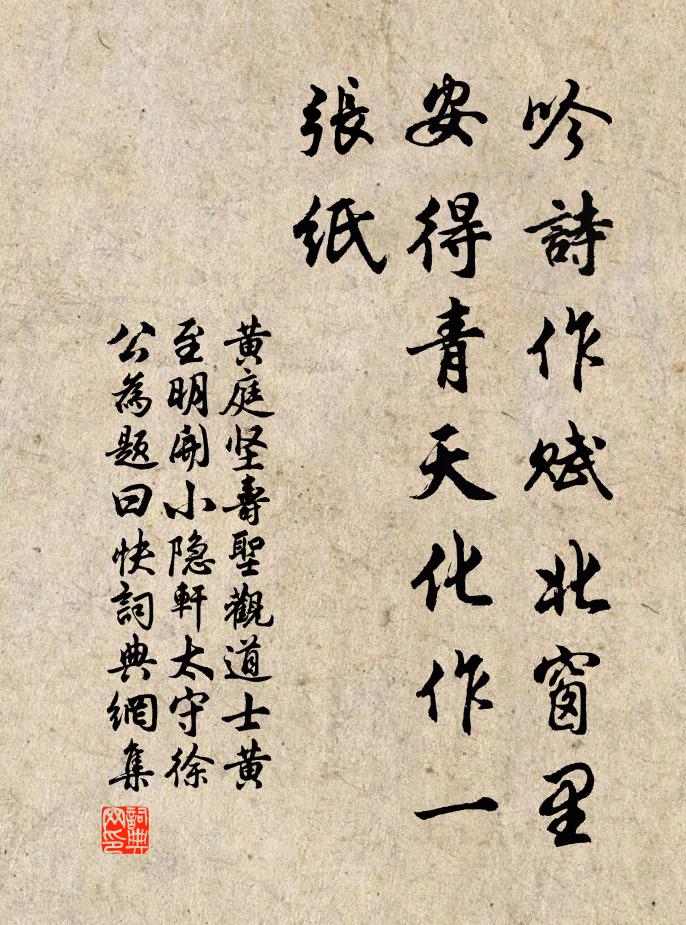 吟詩作賦北窗里
安得青天化作一
張紙
黄庭坚壽聖觀道士黄
至明開小隐軒太守徐
公為题曰快詞典網集
詞典
网印